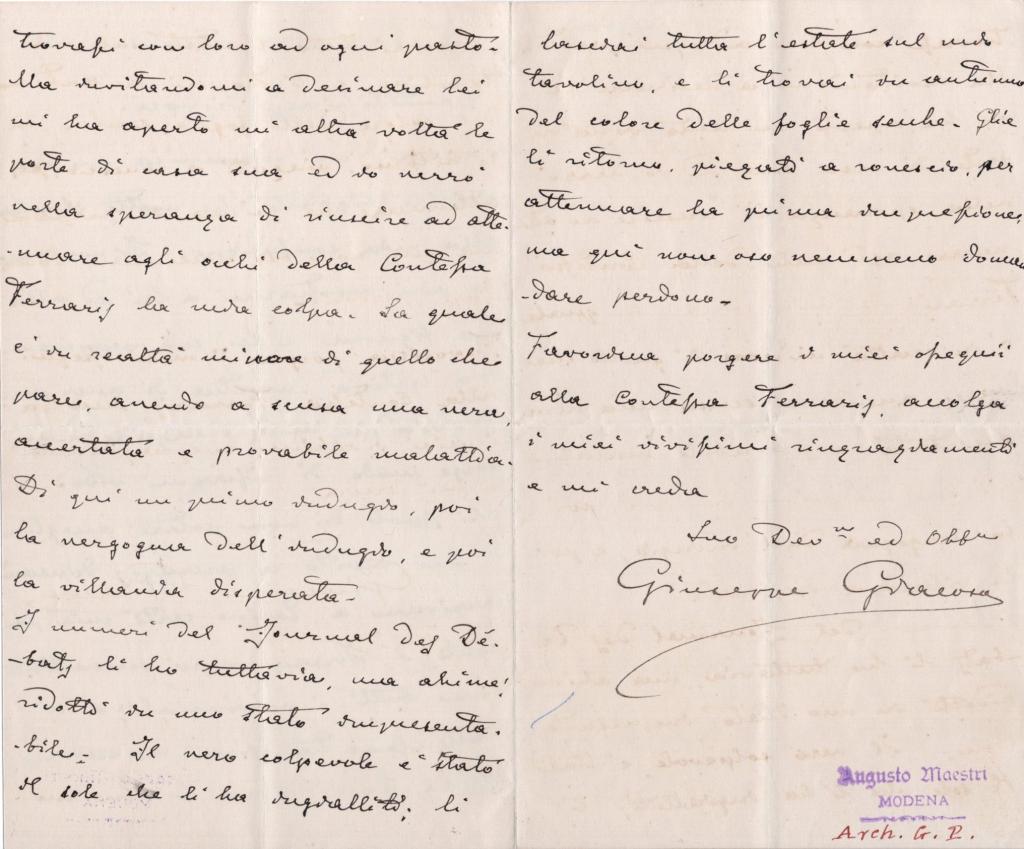 trovarsi con loro ad ogni pasto.
Ma invitandomi a desinare lei
mi ha aperto un'altra volta le
porte di casa sua ed io verrò
nella speranza di riuscire ad atte-
-nuare agli occhi della Contessa
Ferraris la mia colpa. La quale
è in realtà minore di quello che
pare, avendo a scusa una vera,
accertata e provabile malattia.
Di qui un primo indugio, poi
la vergogna dell'indugio, e poi
la villania disperata.
I numeri del Journal des Dé-
-bats li ho tuttavia, ma ahimè!
ridotti in uno stato impresenta-
-bile. Il vero colpevole è stato
il sole che li ha ingialliti; li
lasciai tutta l'estate sul mio
tavolino, e li trovai in autunno
del colore delle foglie secche. Glie
li ritorno, piegati a rovescio, per
attenuare la prima impressione,
ma qui non oso nemmeno doman
-dare perdono.
Favorisca porgere i miei ossequii
alla Contessa Ferraris, accolga
i miei vivissimi ringraziamenti
e mi creda
Suo Dev.mo ed Obb.mo
Giuseppe Giacosa
Augusto Maestri
MODENA
Arch. G. P.